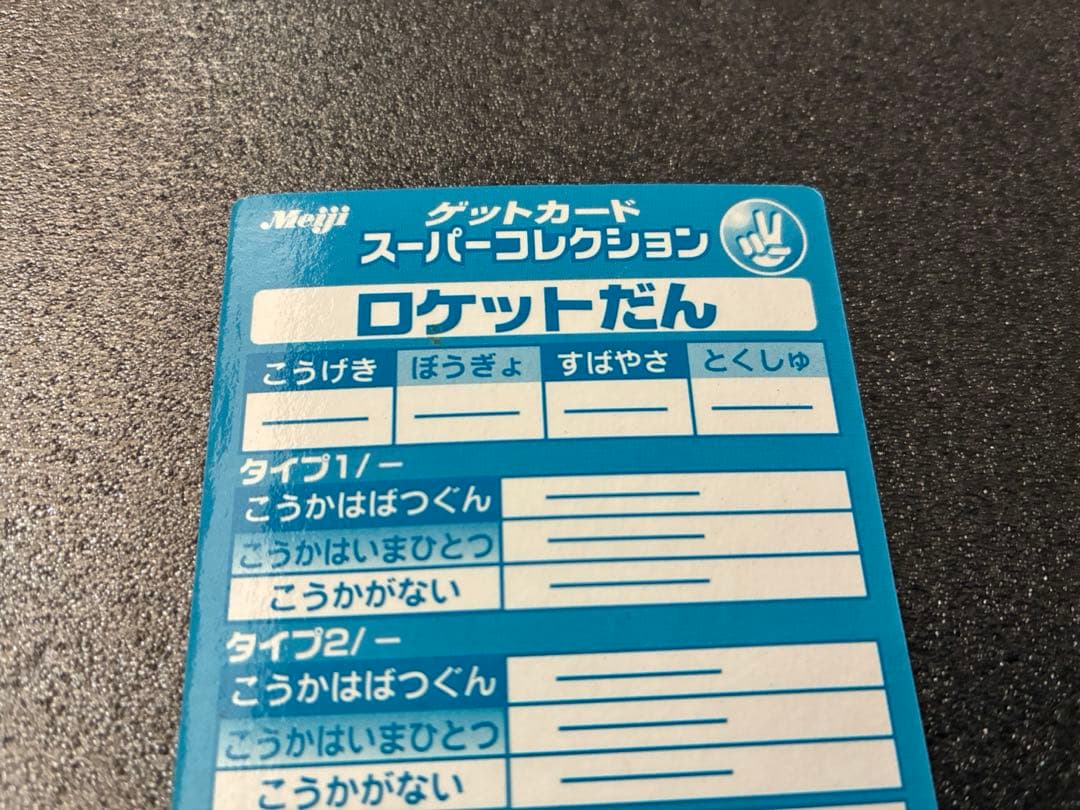 Meiji
ゲットカード
スーパーコレクション
ロケットだん
こうげき ぼうぎょ すばやさ とくしゅ
— — — —
タイプ1/ー
こうかはばつぐん —
こうかはいまひとつ —
こうかがない —
タイプ2/ー
こうかはばつぐん —
こうかはいまひとつ —
こうかがない —